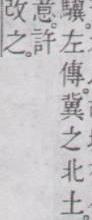 驥。左傳。冀之北土。
意。許
改之。